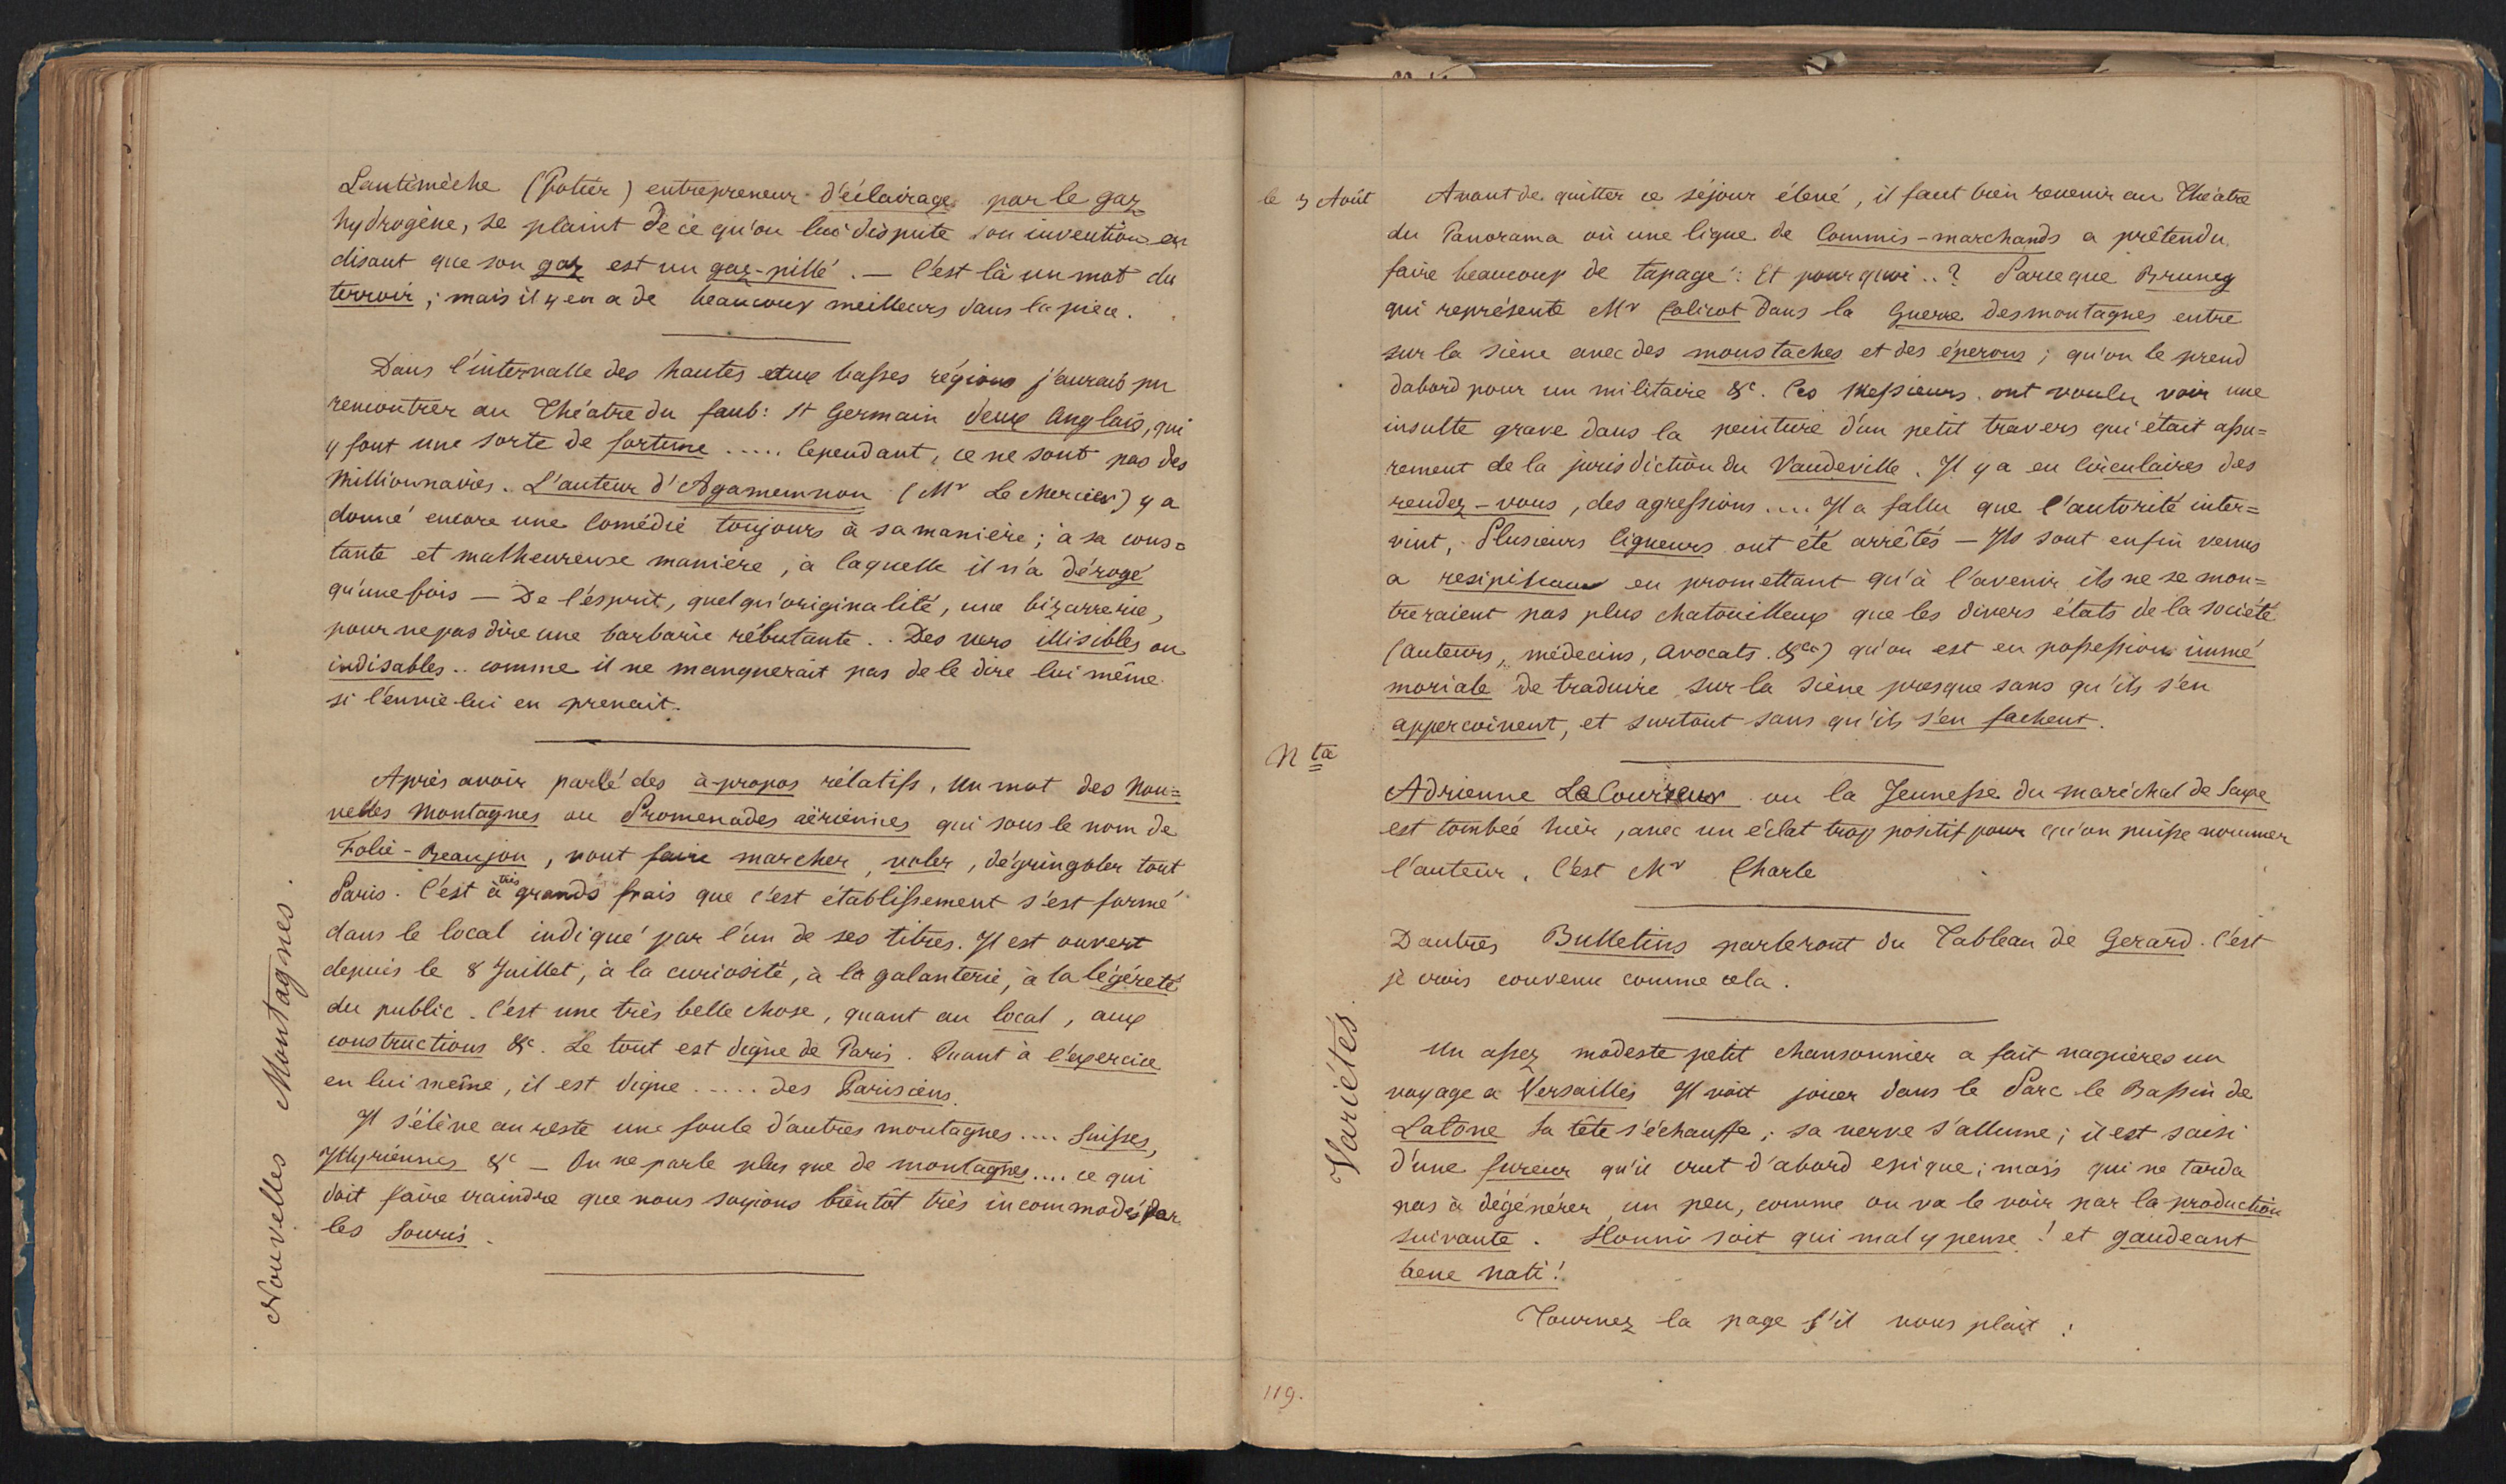 Lantimèche (Potier) entrepreneur d'éclairage par le gaz
hydrogène, se plaint de ce qu'on lui dispute son invention en
disant que son gaz est un gaz-pillé. — C'est là un mot du
terroir; mais il y en a de beaucoup meilleurs dans la pièce.
Dans l'intervalle des hautes aux basses régions j'aurais pu
rencontrer au Théatre du faub: St Germain deux Anglais, qui
y font une sorte de fortune ..... Cependant, ce ne sont pas des
Millionnaires. L'auteur d'Agamemnon (Mr Le Mercier) y a
donné encore une Comédie toujours à sa manière; à sa cons=
tante et malheureuse manière, à laquelle il n'a dérogé
qu'une fois — De l'ésprit, quelqu'originalité, une bizarrerie,
pour ne pas dire une barbarie rébutante .. Des vers illisibles ou
indisables .. comme il ne manquerait pas de le dire lui même
si l'envie lui en prenait.
Après avoir parlé des à-propos rélatifs, Un mot des Nou=
velles Montagnes ou Promenades aëriennes qui sous le nom de
Folie-Beaujon, vont faire marcher, voler, dégringoler tout
Paris. C'est à très grands frais que c'est établissement s'est formé
dans le local indiqué par l'un de ses titres. Il est ouvert
depuis le 8 Juillet, à la curiosité, à la galanterie, à la légéreté
du public. C'est une très belle chose, quant au local, aux
constructions &c. Le tout est digne de Paris. Quant à l'exercice
en lui même, il est digne ..... des Parisiens.
Il s'élève au reste une foule d'autres montagnes .... Suisses,
Illyriennes &c — On ne parle plus que de montagnes .... ce qui
doit faire craindre que nous soyions bientôt très incommodés par
les Souris.
Nouvelles Montagnes.
le 3 Août
Avant de quitter ce séjour élevé, il faut bien revenir au Théatre
du Panorama où une ligue de Commis-marchands a prétendu
faire beaucoup de tapage: Et pourquoi ..? Parceque Brunet
qui représente Mr Calicot dans la Guerre des montagnes entre
sur la scène avec des moustaches et des éperons; qu'on le prend
dabord pour un militaire &c. Ces Messieurs ont voulu voir une
insulte grave dans la peinture d'un petit travers qui était assu=
rement de la jurisdiction du Vaudeville. Il y a eu Circulaires des
rendez-vous, des agressions .... Il a fallu que l'autorité inter=
vint, Plusieurs ligueurs ont été arrêtés — Ils sont enfin venus
a resipiscence en promettant qu'à l'avenir ils ne se mon=
treraient pas plus chatouilleux que les divers états de la société
(Auteurs, médecins, Avocats. &ca) qu'on est en possession immé
moriale de traduire sur la scène presque sans qu'ils s'en
appercoivent, et surtout sans qu'ils s'en fachent.
Nta
Adrienne Le Couvreur ou la Jeunesse du maréchal de Saxe
est tombée hièr, avec un éclat trop positif pour qu'on puisse nommer
l'auteur, C'est Mr Charle
Dautres Bulletins parleront du Tableau de Gerard. C'est
je crois convenu comme cela.
Variétés.
Un assez modeste petit chansonnier a fait naguières un
voyage a Versailles Il voit jouer dans le Parc le Bassin de
Latône Sa tête s'échauffe; sa verve s'allume; il est saisi
d'une fureur qu'il crut d'abord epique; mais qui ne tarda
pas à dégénérer un peu, comme on va le voir par la production
suivante. Honni soit qui mal y pense! et gaudeant
bene nati!
Tournez la page s'il vous plait!
119.